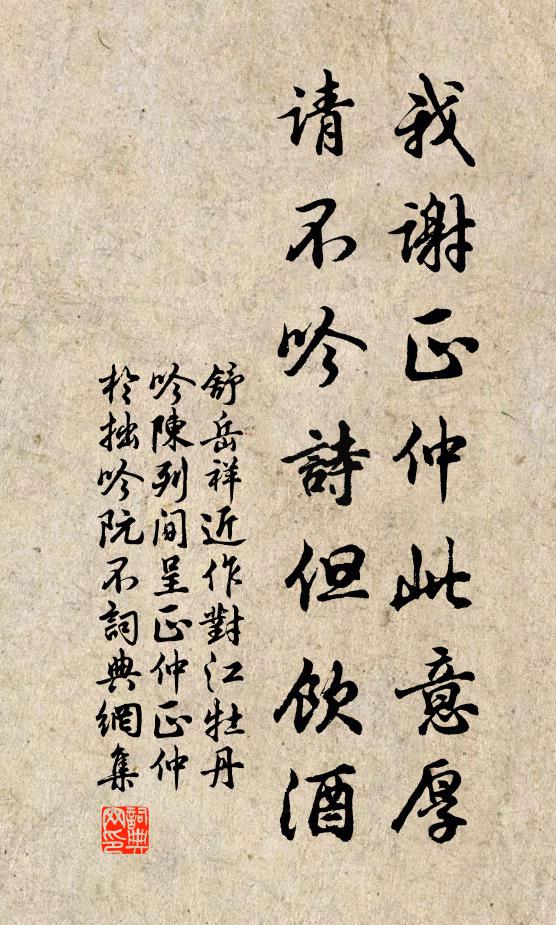 我谢正仲此意厚
请不吟詩但飲酒
舒岳祥近作對江牡丹
吟陳列间呈正仲正仲
於拙吟阮不詞典網集
詞典网印